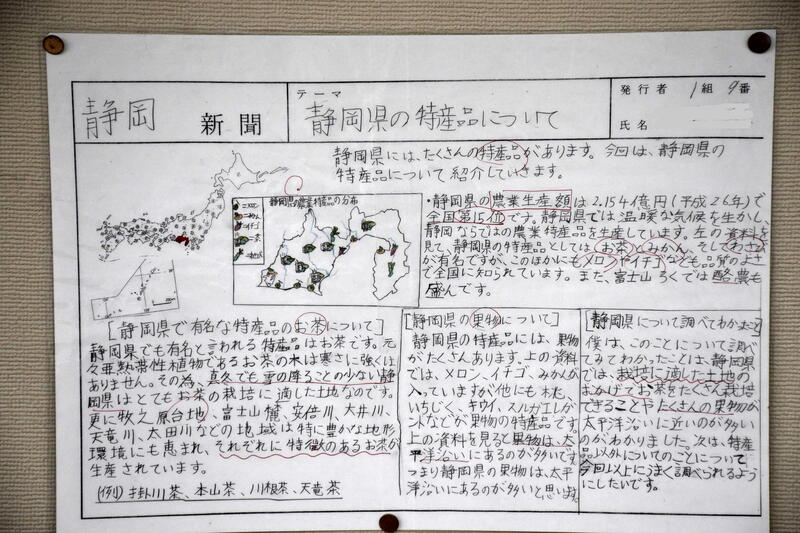 静岡 新聞
テーマ
静岡県の特産品について
発行者 1組 9番
氏名
静岡県には、たくさんの特産品があります。今回は、静岡県の
特産品について紹介していきます。
静岡県の農業特産品の分布
メロン
みかん
イチゴ
・静岡県の農業生産額は2.154億円(平成26年)で
全国第15位です。静岡県では温暖な気候を生かし、
静岡ならではの農業特産品を生産しています。左の資料を
見て、静岡県の特産品としてはお茶、みかん、そしてわさび
が有名ですが、このほかにもメロンやイチゴなども品質のよさ
で全国に知られています。また、富士山ろくでは酪農も
盛んです。
[静岡県で有名な特産品のお茶について]
静岡県でも有名と言われる特産品はお茶です。元
々亜熱帯性植物であるお茶の木は寒さに強くは
ありません。その為、真冬でも雪の降ることの少ない静
岡県はとてもお茶の栽培に適した土地なのです。
更に牧之原台地、富士山麓、安倍川、大井川、
天竜川、太田川などの地域は特に豊かな地形
環境にも恵まれ、それぞれに特徴のあるお茶が
生産されています。
(例)掛川茶、本山茶、川根茶、天竜茶
[静岡県の果物について]
静岡県の特産品には、果物
がたくさんあります。上の資料
では、メロン、イチゴ、みかんが
入っていますが他にも桃、
いちじく、キウイ、スルガエレガ
ントなどが果物の特産品です。
上の資料を見ると果物は、太
平洋沿いにあるのが多いです。
つまり静岡県の果物は、太平
洋沿いにあるのが多いと思います。
[静岡県について調べてわかったこと]
僕は、このことについて調べ
てみてわかったことは、静岡県
では、栽培に適した土地の
おかげでお茶をたくさん栽培
できることやたくさんの果物が
太平洋沿いに近いのが多い
のがわかりました。次は、特産
品以外についてのことについて
今回以上にうまく調べられるよう
にしたいです。